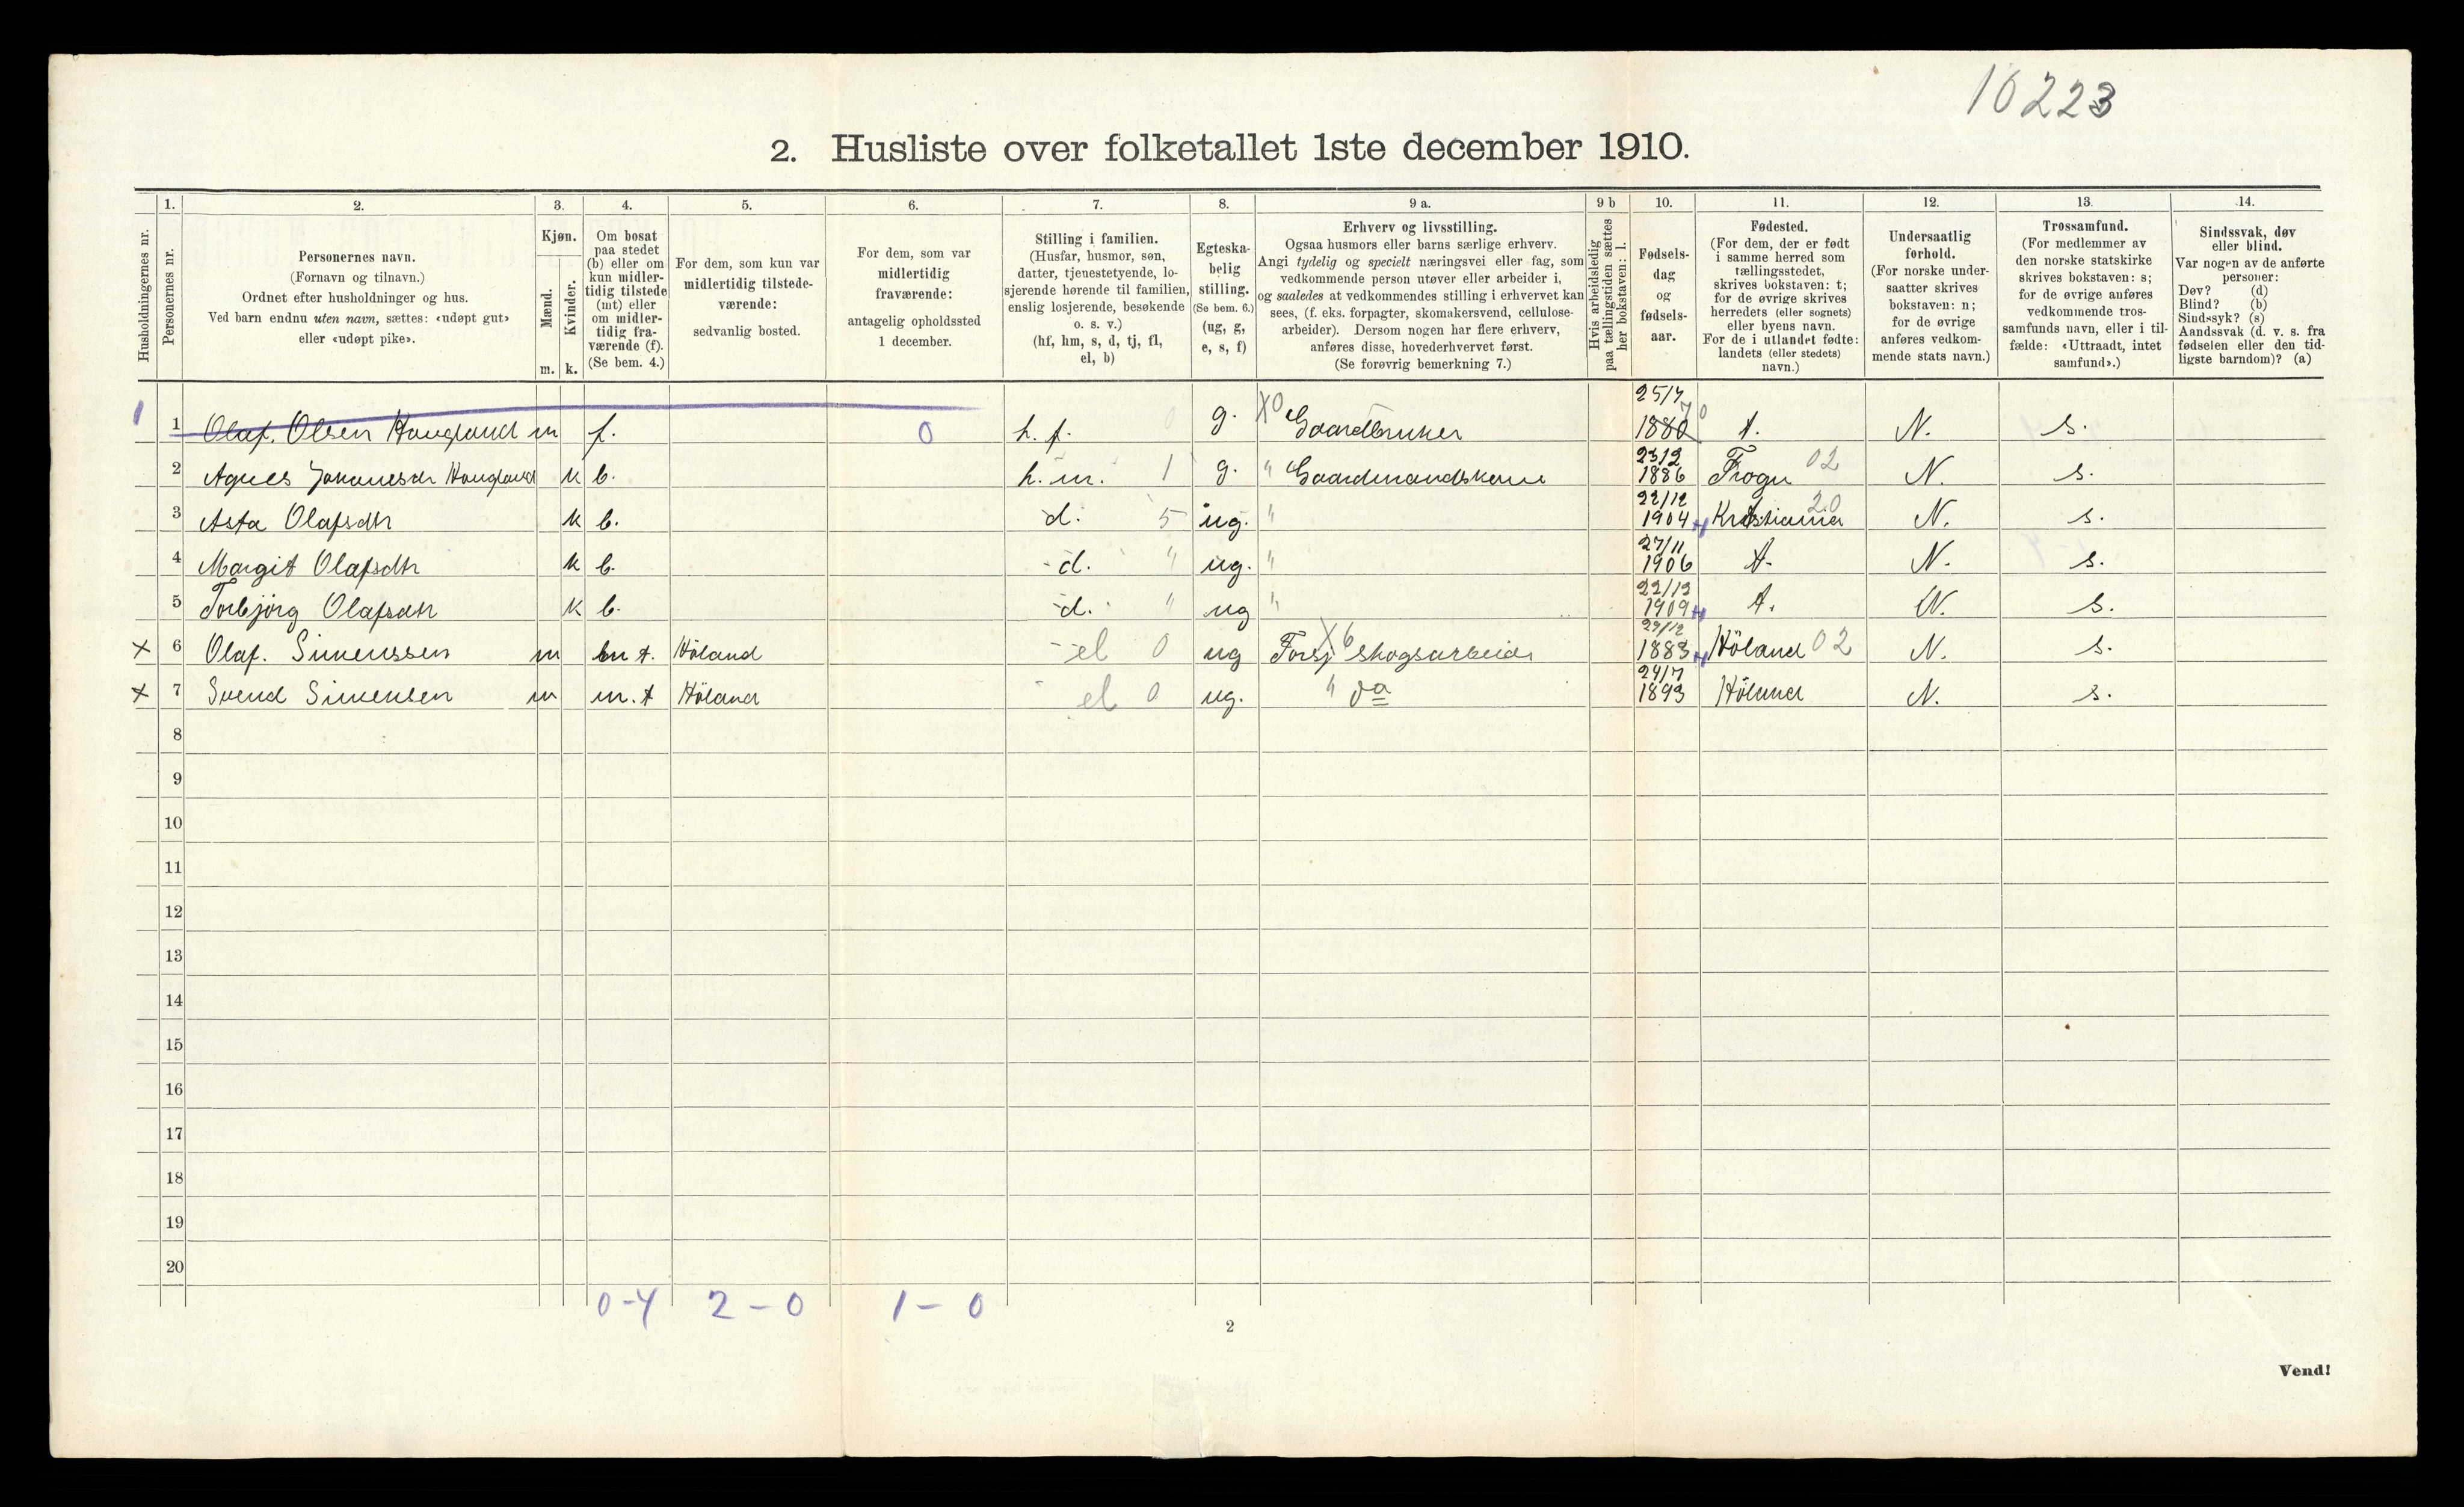 10223
2. Husliste over folketallet 1ste december 1910.
Husholdningernes nr.
1.
Personernes nr.
2.
Personernes navn.
(Fornavn og tilnavn.)
Ordnet efter husholdninger og hus.
Ved barn endnu uten navn, sættes: «udøpt gut»
eller «udøpt pike».
3.
Kjøn.
Mænd.
Kvinder.
m. k.
4.
Om bosat
paa stedet
(b) eller om
kun midler-
tidig tilstede
(mt) eller
om midler-
tidig fra-
værende (f).
(Se bem. 4.)
5.
For dem, som kun var
midlertidig tilstede-
værende:
sedvanlig bosted.
6.
For dem, som var
midlertidig
fraværende:
antagelig opholdssted
1 december.
7.
Stilling i familien.
(Husfar, husmor, søn,
datter, tjenestetyende, lo-
sjerende hørende til familien,
enslig losjerende, besøkende
o. s. v.)
(hf, hm, s, d, tj, fl,
el, b)
8.
Egteska-
belig
stilling.
(Se bem. 6.)
(ug, g,
e, s, f)
9 a.
Erhverv og livsstilling.
Ogsaa husmors eller barns særlige erhverv.
Angi tydelig og specielt næringsvei eller fag, som
vedkommende person utøver eller arbeider i,
og saaledes at vedkommendes stilling i erhvervet kan
sees, (f. eks. forpagter, skomakersvend, cellulose-
arbeider). Dersom nogen har flere erhverv,
anføres disse, hovederhvervet først.
(Se forøvrig bemerkning 7.)
9 b
Hvis arbeidsledig
paa tællingstiden sættes
her bokstaven: l.
10.
Fødsels-
dag
og
fødsels-
aar.
11.
Fødested.
(For dem, der er født
i samme herred som
tællingsstedet,
skrives bokstaven: t;
for de øvrige skrives
herredets (eller sognets)
eller byens navn.
For de i utlandet fødte:
landets (eller stedets)
navn.)
12.
Undersaatlig
forhold.
(For norske under-
saatter skrives
bokstaven: n;
for de øvrige
anføres vedkom-
mende stats navn.)
13.
Trossamfund.
(For medlemmer av
den norske statskirke
skrives bokstaven: s;
for de øvrige anføres
vedkommende tros-
samfunds navn, eller i til-
fælde: «Uttraadt, intet
samfund».)
14.
Sindssvak, døv
eller blind.
Var nogen av de anførte
personer:
Døv? (d)
Blind? (b)
Sindssyk? (s)
Aandssvak (d. v. s. fra
fødselen eller den tid-
ligste barndom)? (a)
1 1 Olaf. Olsen Haugland m f. 0 h. f. g. X0 Gaardbruker 25/7 1880 70 t. N. s.
2 Agnes Johanesdr Haugland k b. h. m. 1 g. " Gaardmandskone 23/2 1886 Frogn 02 N. s.
3 Asta Olafsdtr k b. d. 5 ug. " 22/12 1904 Kristiania 20 N. s.
4 Margit Olafsdtr k b. d. " ug. " 27/11 1906 t. N. s.
5 Torbjörg Olafsdtr k b. d. " ug " 1909 t. N. s.
X 6 Olaf. Simenssen m m t. Höland el 0 ug X6 skogsarbeider 29/12 1883 Höland 02 N. s.
X 7 Svend Simensen m m. t Höland el 0 ug. " do 24/7 1893 Höland N. s.
8
9
10
11
12
13
14
15
16
17
18
19
20
0-4 2-0 1-0
2
Vend!